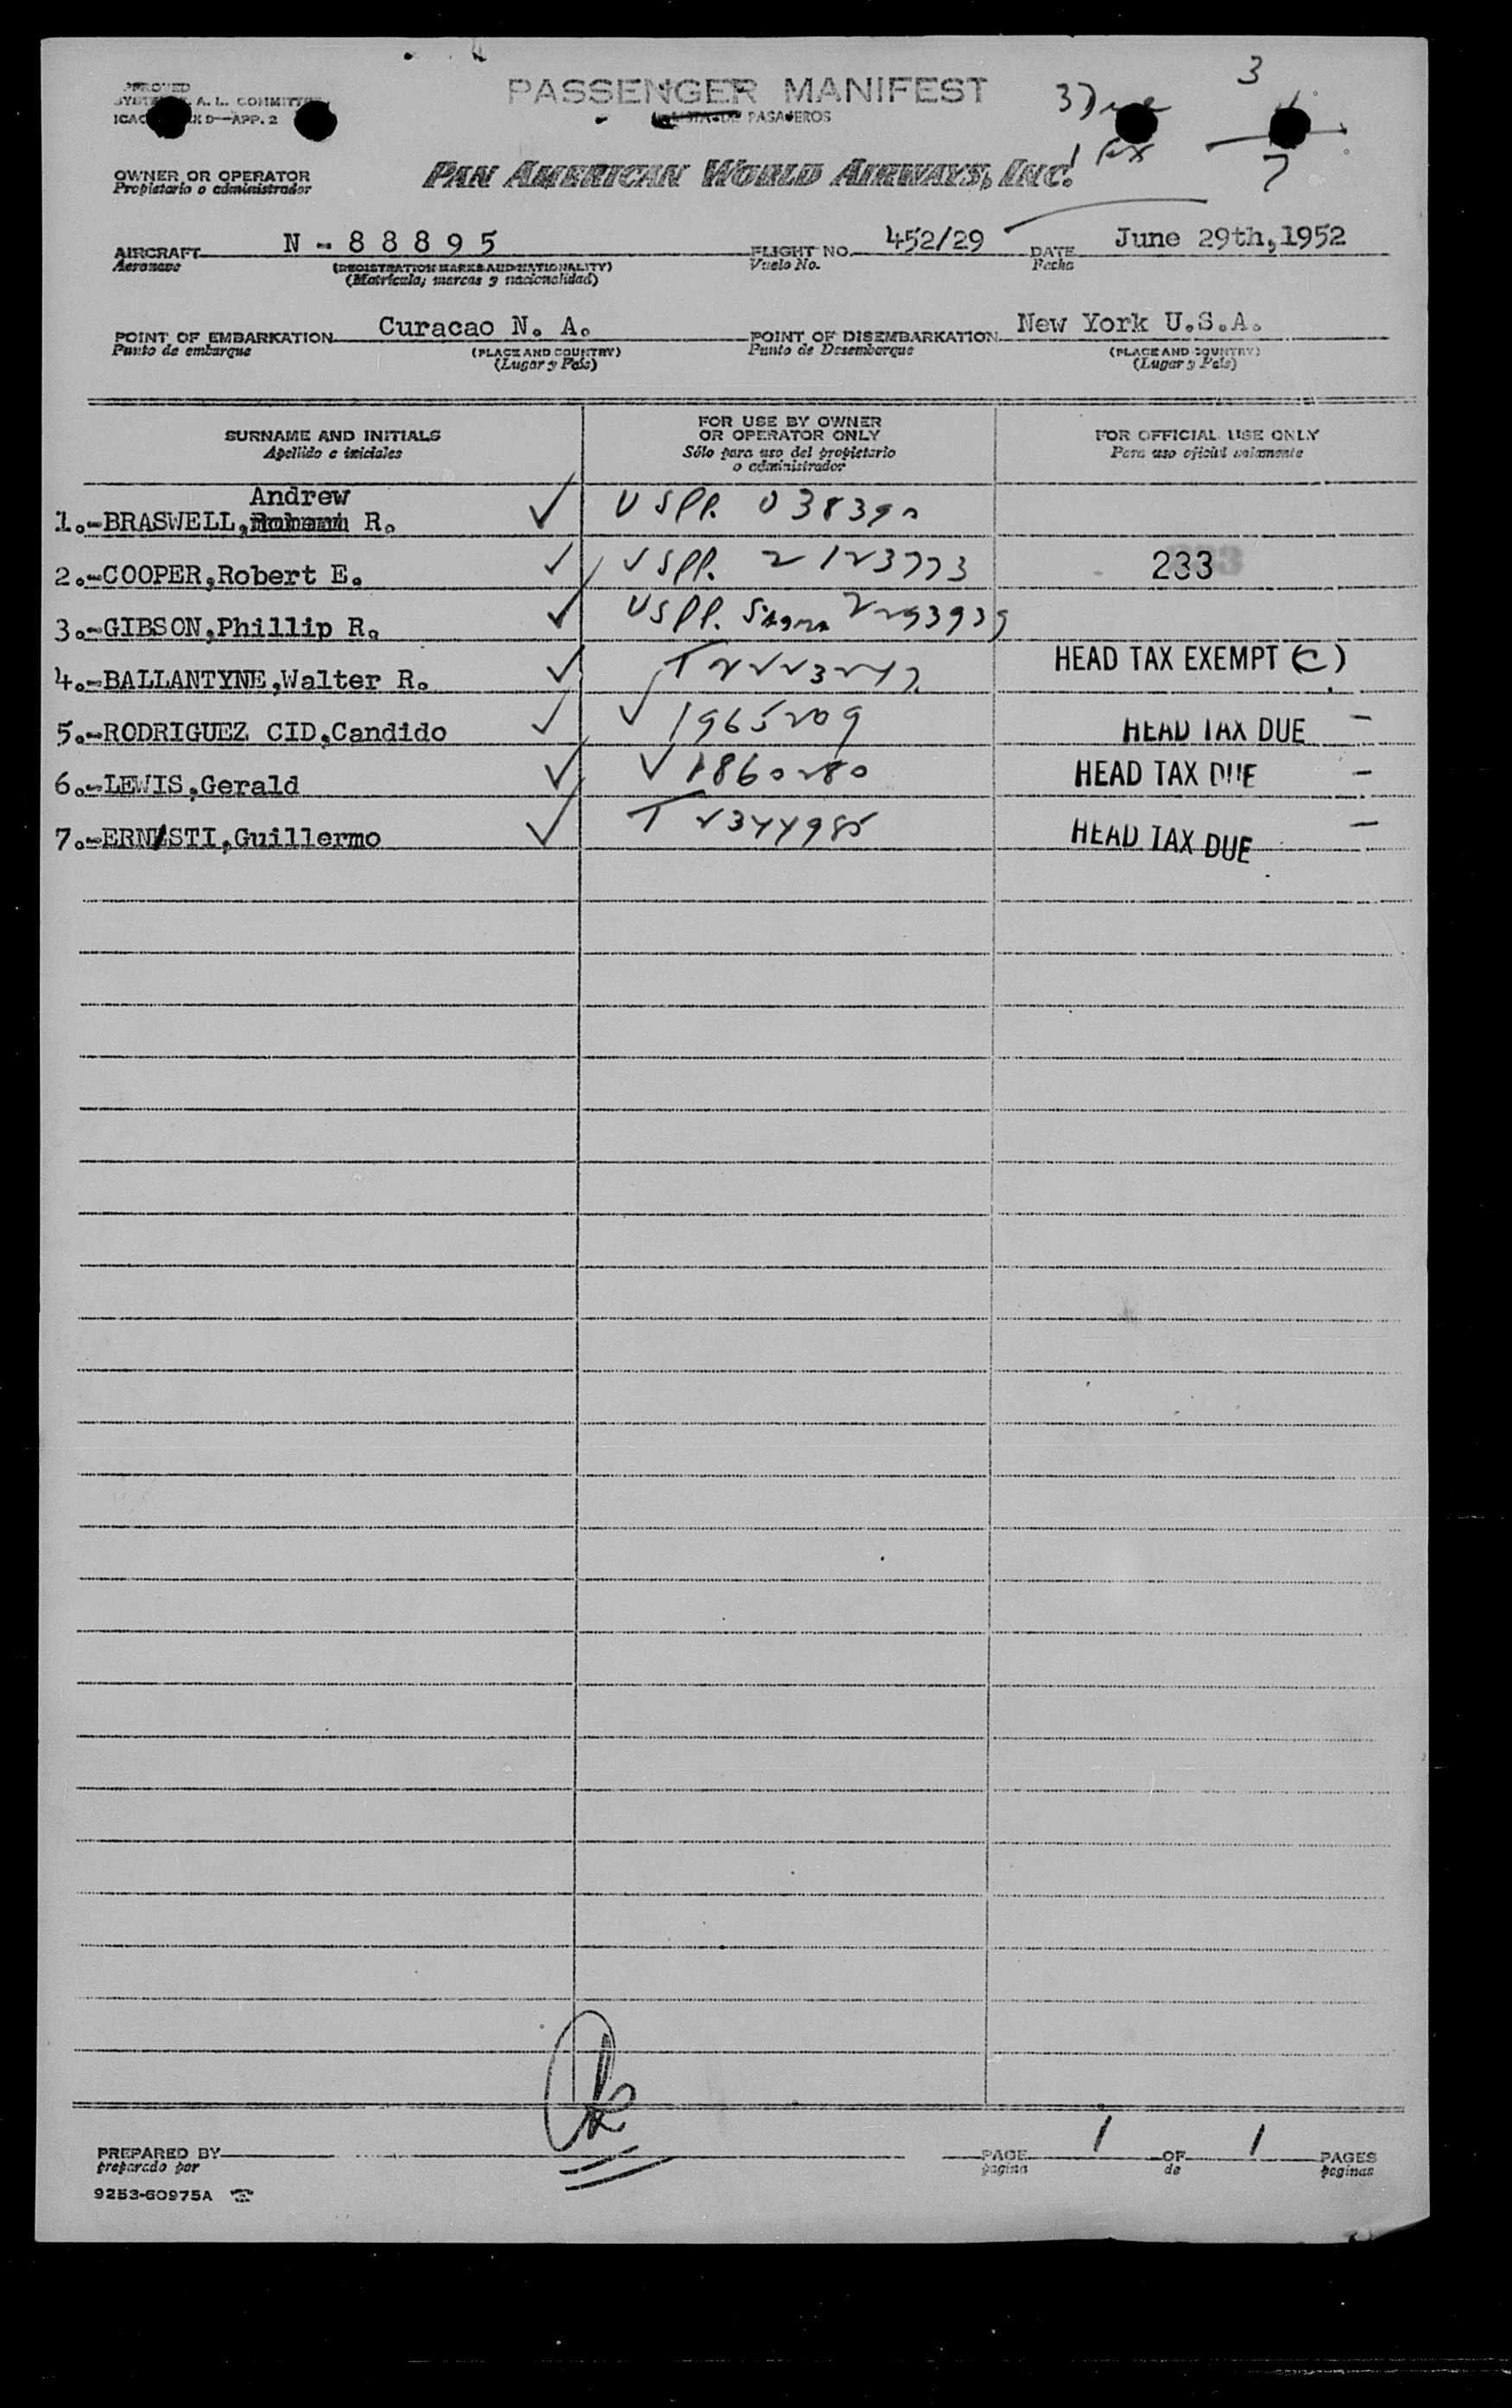 A. L. COMMITTEE
D—APP. 2
PASSENGER MANIFEST
PASAJEROS
3
3 Due
1 Ex
7
OWNER OR OPERATOR
Propietario o administrador
PAN AMERICAN WORLD AIRWAYS, INC.
AIRCRAFT N - 8 8 8 9 5 FLIGHT NO. 452/29 DATE June 29th, 1952
Aeronave (REGISTRATION MARKS AND NATIONALITY) Vuelo No. Fecha
(Matricula, marcas y nacionalidad)
POINT OF EMBARKATION Curacao N. A. POINT OF DISEMBARKATION New York U.S.A.
Punto de embarque (PLACE AND COUNTRY) Punto de Desembarque (PLACE AND COUNTRY)
(Lugar y País) (Lugar y País)
SURNAME AND INITIALS
Apellido e iniciales
FOR USE BY OWNER
OR OPERATOR ONLY
Sólo para uso del propietario
o administrador
FOR OFFICIAL USE ONLY
Para uso oficial solamente
Andrew
1.-BRASWELL, R. ✓ USPP. 038390
2.-COOPER,Robert E. ✓ USPP. 2123773 233
3.-GIBSON,Phillip R. ✓ USPP. 2293939
4.-BALLANTYNE,Walter R. ✓ T 2223242 HEAD TAX EXEMPT (C)
5.-RODRIGUEZ CID,Candido ✓ V 1965209 HEAD TAX DUE -
6.-LEWIS,Gerald ✓ V 1860280 HEAD TAX DUE -
7.-ERNESTI,Guillermo ✓ T 2344985 HEAD TAX DUE -
PREPARED BY PAGE 1 OF 1 PAGES
preparado por pagina de paginas
9253-60975A